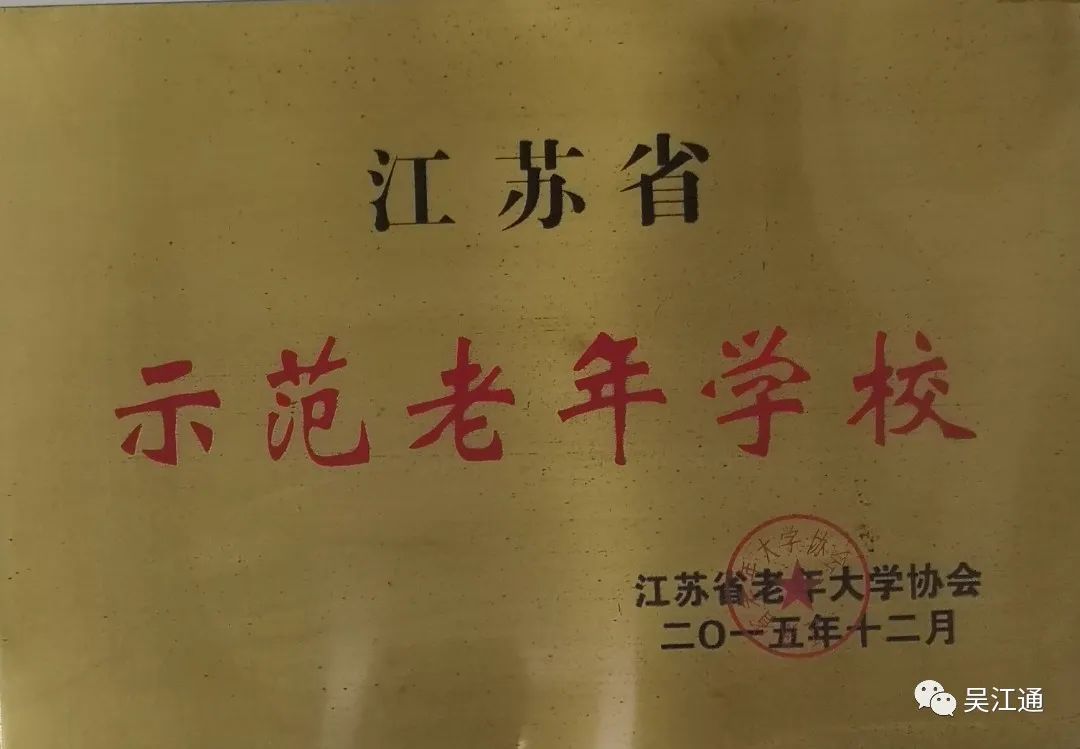 江苏省
示范老年学校
江苏省老年大学协会
二〇一五年十二月
吴江通